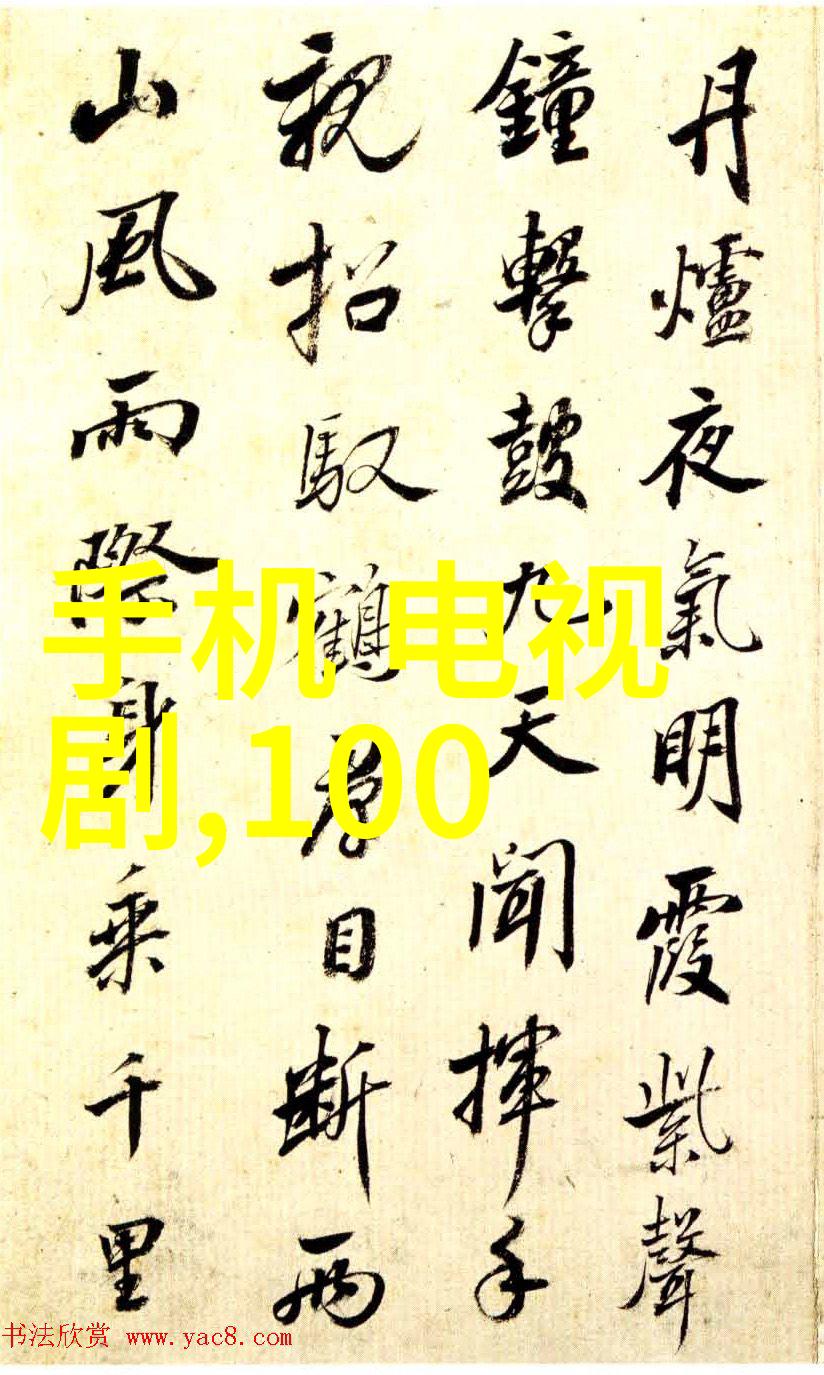 丹爐夜氣明霞紫聲
鐘擊鼓九天聞揮手
親招馭鶴君目斷兩
山風雨際身乘千里
手机 电视
剧,100
书法欣赏 www.yac8.com